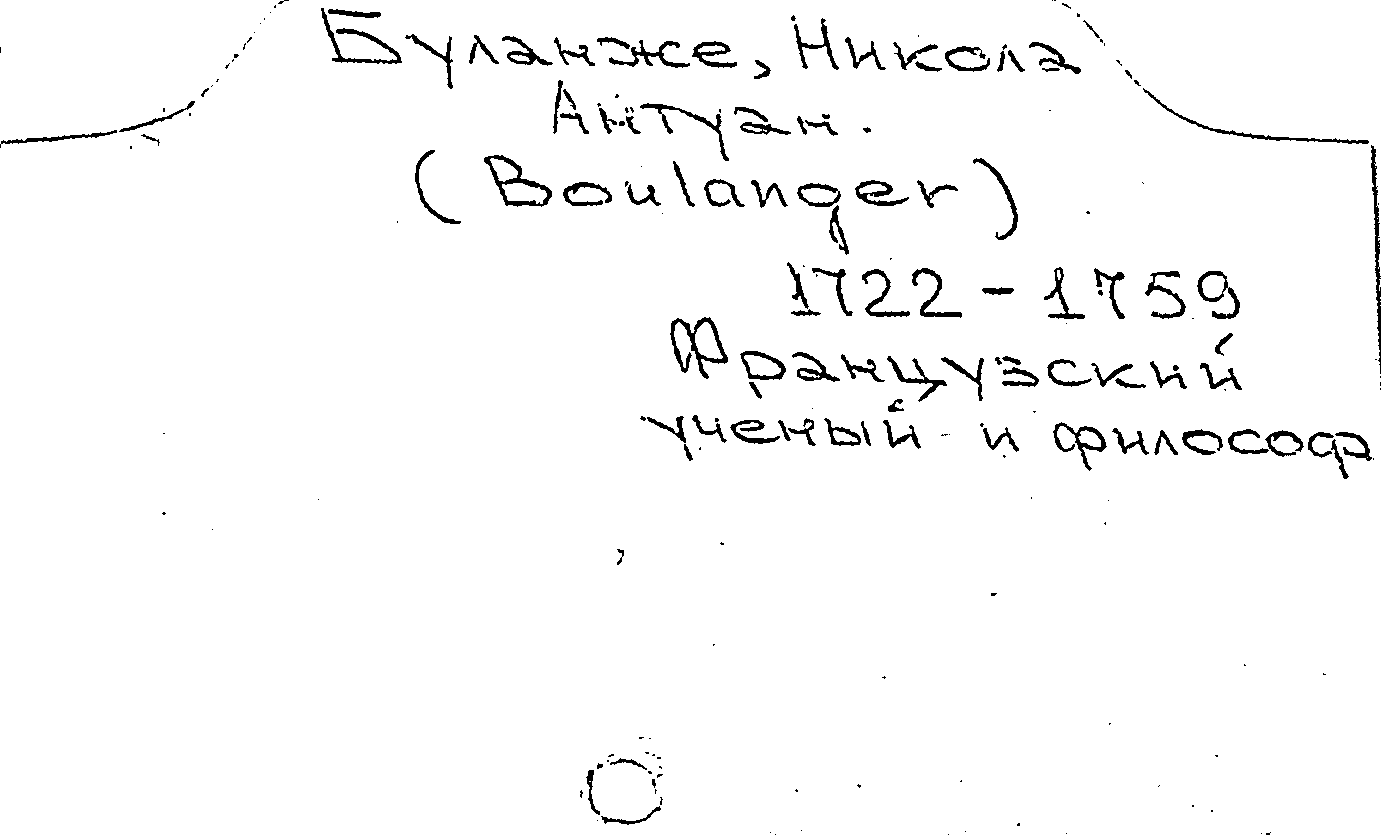 Буланже, Никола
Антуан.
(Boulanger)
1722 - 1759
Французский
ученый и философ